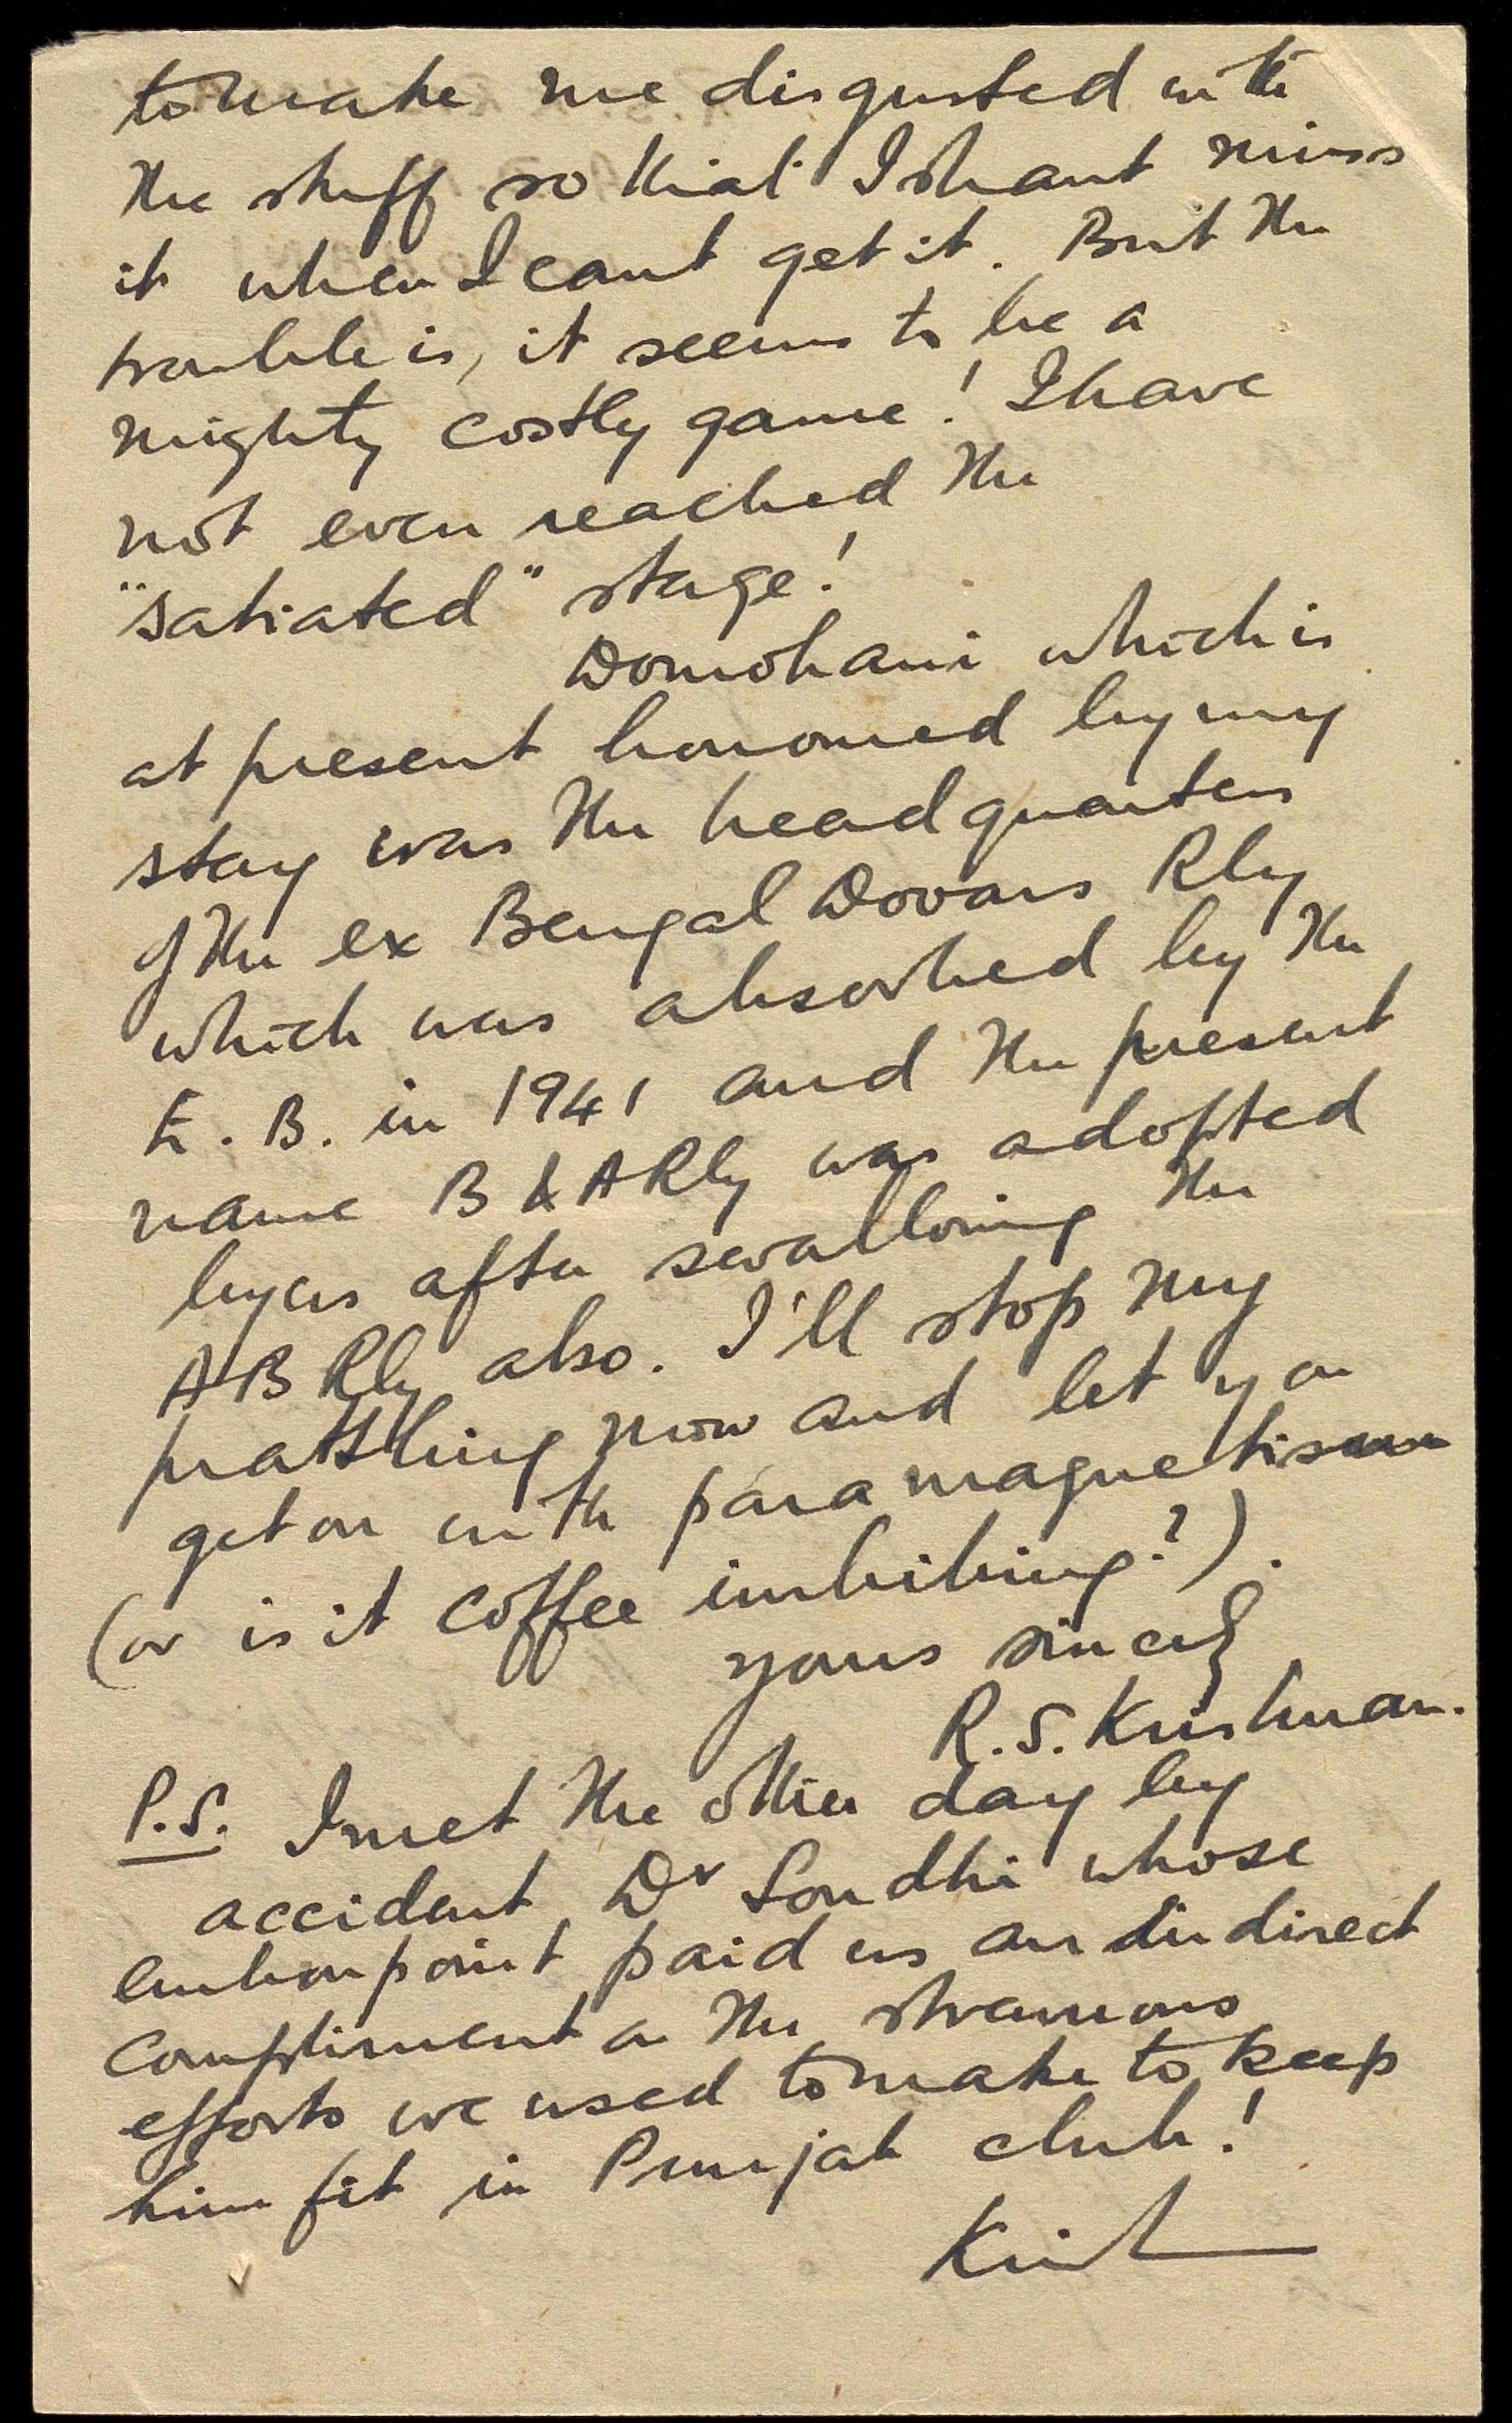 to make me disgusted with
the stuff so that I shant miss
it when I cant get it. But the
trouble is, it seems to be a
mighty costly game! I have
not even reached the
"satiated" stage!
Domohani which is
at present honoured by my
stay was the headquarters
of the ex Bengal Dooars Rly
which was absorbed by the
E. B. in 1941 and the present
name B & A Rly was adopted
after swallowing the
A B Rly also. I'll stop my
prattling now and let you
get on with paramagnetism
(or is it coffee imbibing?).
yours sincerely
R. S. Krishnan.
P.S. I met the other day by
accident Dr Sondhi whose
embonpoint paid us an indirect
compliment on the strenuous
efforts we used to make to keep
him fit in Punjab club!
Krish